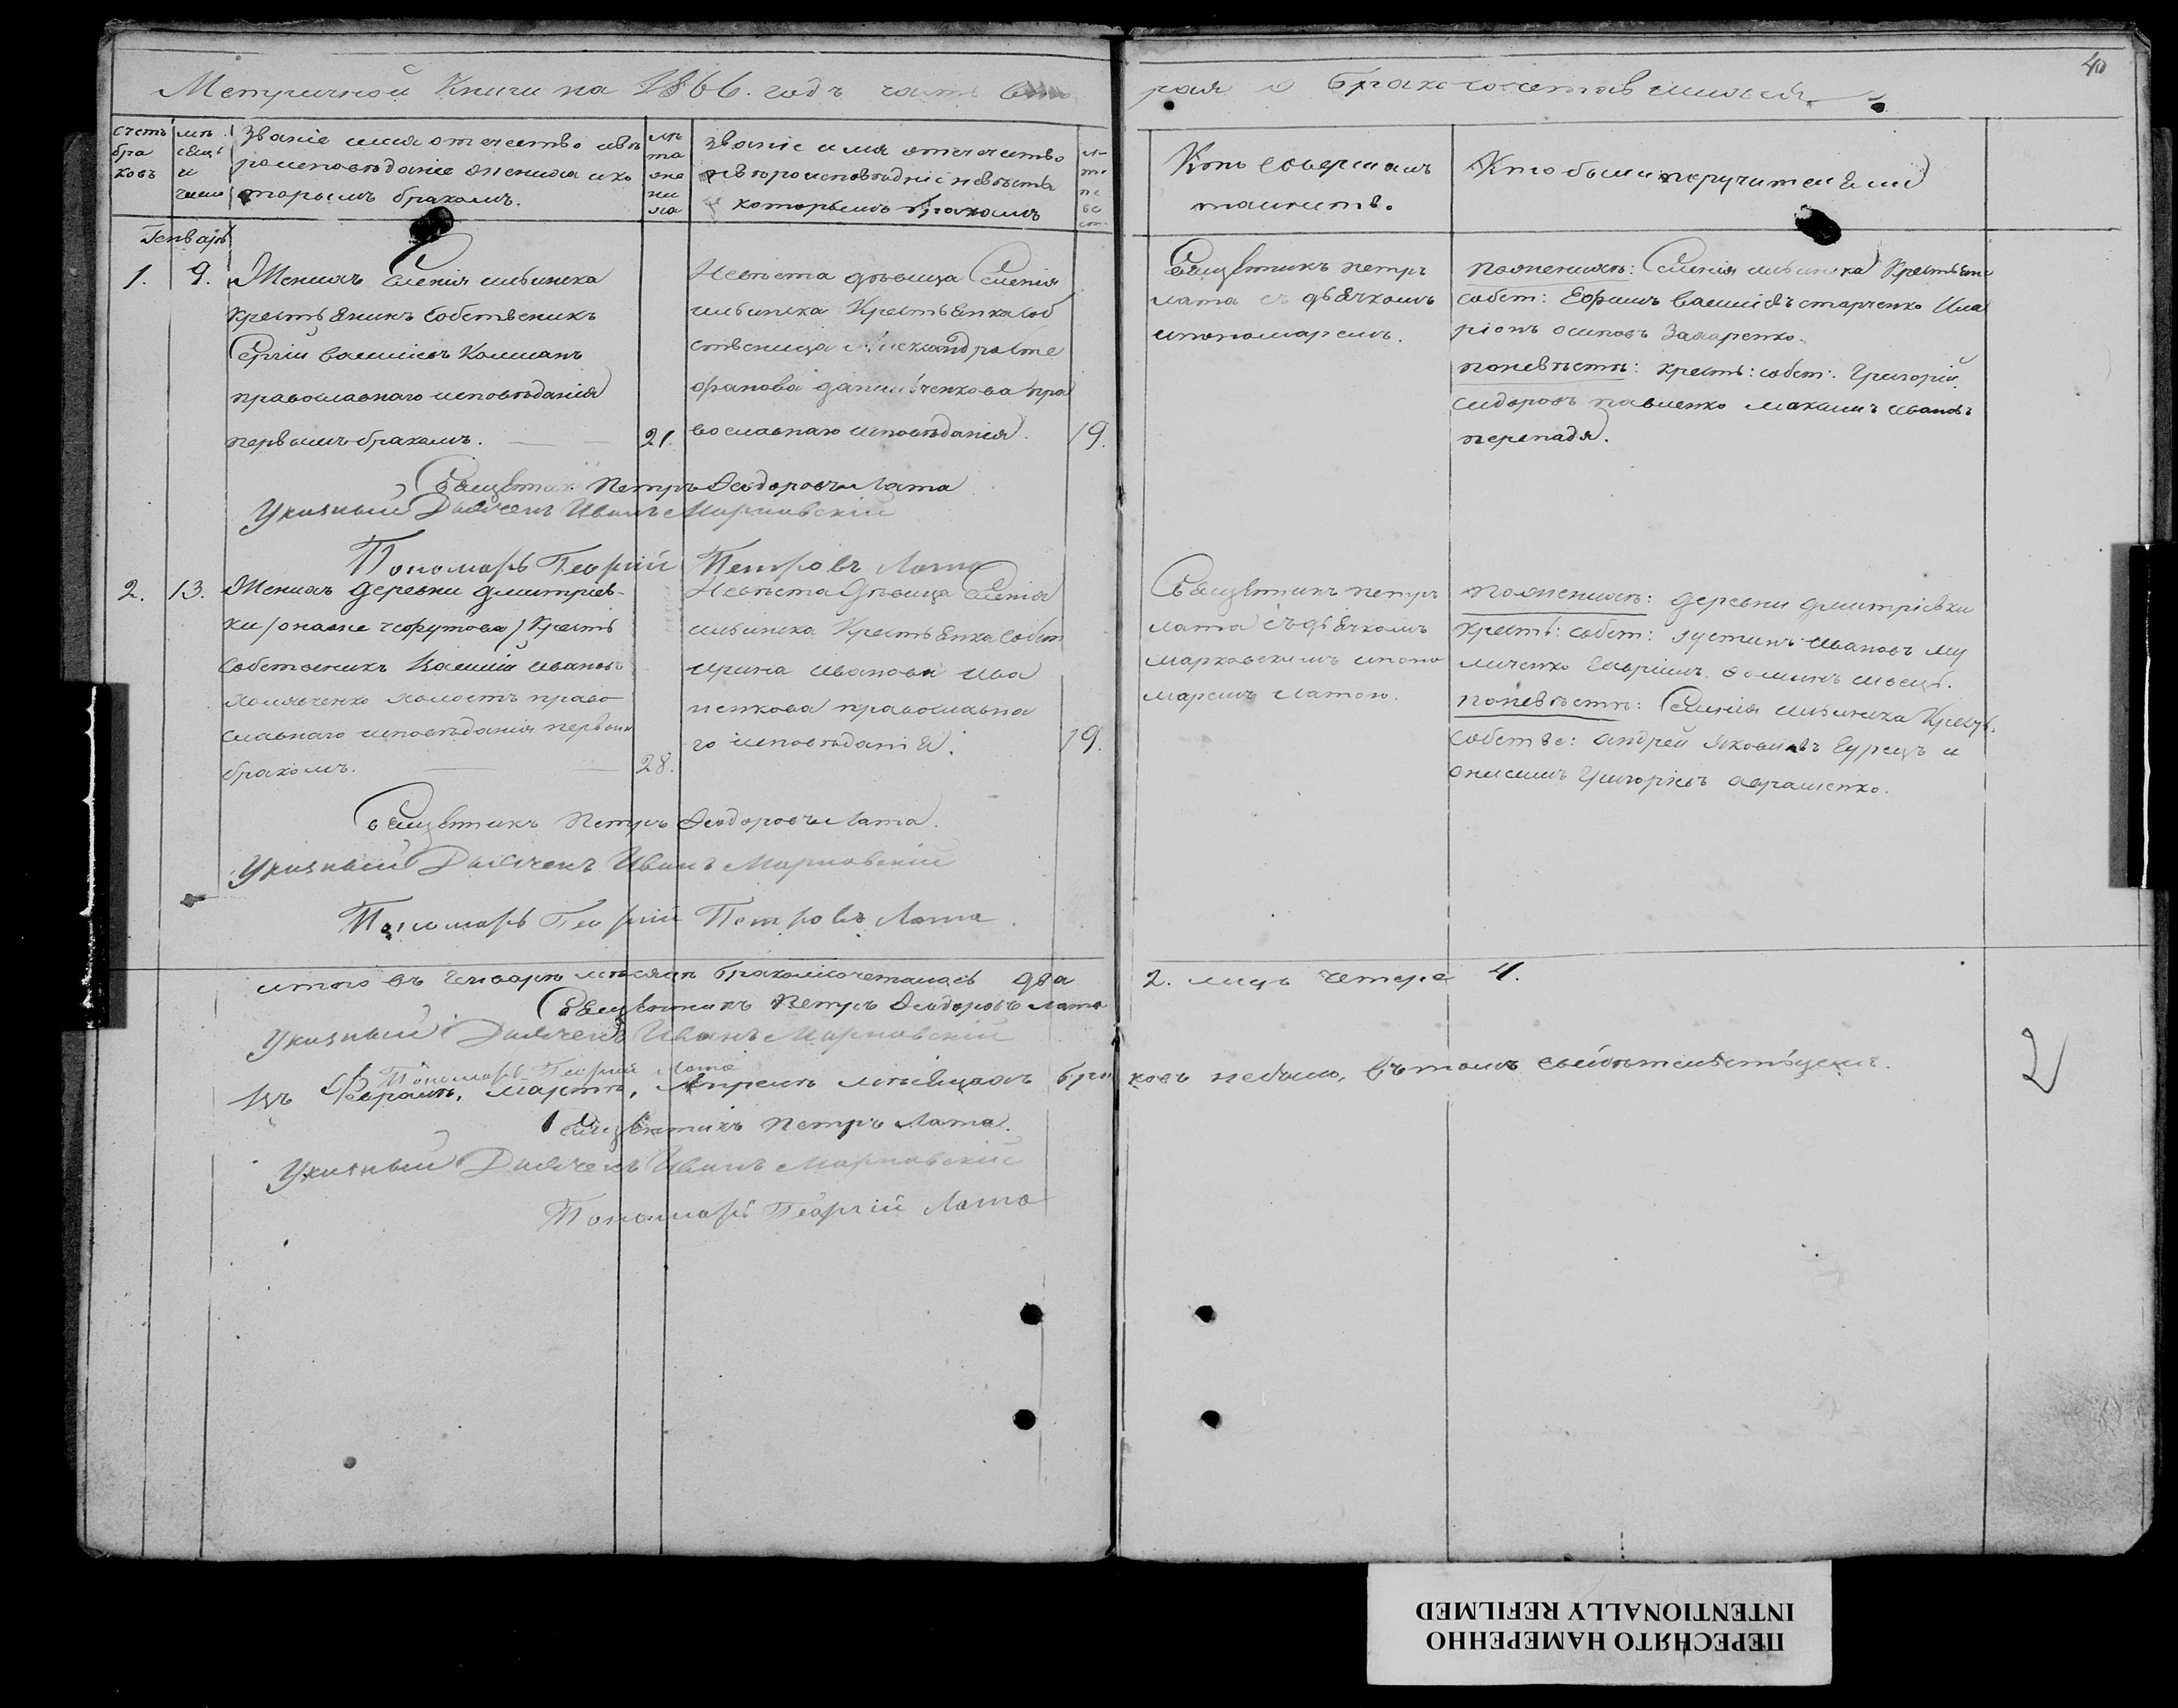 40
Метричной Книги на 1866. годъ часть вто
рая о бракосочетавшихся.
счетъ браковъ
мѣсяцъ и число
Званіе имя отечество и вѣ
роисповѣданіе жениха и ко
торымъ бракомъ.
лѣта жениха
званіе имя отечество
и вѣроисповѣдніе невѣсты
и которымъ бракомъ
лѣта невест
Кто совершалъ
таинств.
Кто были поручители
Генварь
1.
9.
Женихъ Селенія
Крестьянинъ Собственикъ
Сергій Василіевъ
православнаго исповѣданія
первымъ бракомъ.
21.
Невѣста дѣвица Селенія
Крестьянка Соб
ственица Александра Сте
фанова данильченкова пра
вославнаго исповѣданія.
19.
Священникъ петръ
лата съ дьячкомъ
ипономаремъ.
поженихѣ: Селенія Крестьян
собст: Ефимъ Василіевъ старченко Ила
ріонъ осиповъ Захаренко.
поневѣстѣ: крестъ: собст: Григорій
сидоровъ павленко максимъ ивановъ
перепадя.
Священник Петръ Феодоровъ Лата
Указный Дьячекъ Иванъ Марковскій
Пономарь Георгій Петровъ Лата
2.
13.
Женихъ деревни дмитріев-
ки /онаже чефутова/ Кресть
Собственикъ Василій ивановъ
холостъ право
славнаго исповѣданія первым
бракомъ.
28.
Невѣста Дѣвица Селенія
Крестьянка Собст
ирина иванова ива
ненкова православна
го исповѣданія.
19.
Священникъ петръ
лата съ дьячкомъ
марковскимъ ипоно
маремъ латою.
поженихѣ: деревни дмитріевки
крестъ: собст: устинъ ивановъ ми
личенко
поневѣстѣ: Селенія Крест.
Собстве: андрей яковлевъ и
онисимъ Григоріевъ авраменко.
Священникъ Петръ Феодоровъ Лата.
Указный Дьячекъ Иванъ Марковскій
Пономарь Георгій Петровъ Лата.
итого въ Генварѣ мѣсяцѣ бракомъ два
2. лицъ четыре 4.
Священникъ Петръ Феодоровъ лата
Указный Дьячекъ Иванъ Марковскій
Пономарь Георгій Лата
Въ Февралѣ, мартѣ, Апрелѣ мѣсяцахъ бра
ковъ небыло, въ томъ свидѣтельствуемъ.
2
Священникъ Петръ Лата.
Указный Дьячекъ Иванъ Марковскій
Пономарь Георгій Лата
ПЕРЕСНЯТО НАМЕРЕННО
INTENTIONALLY REFILMED